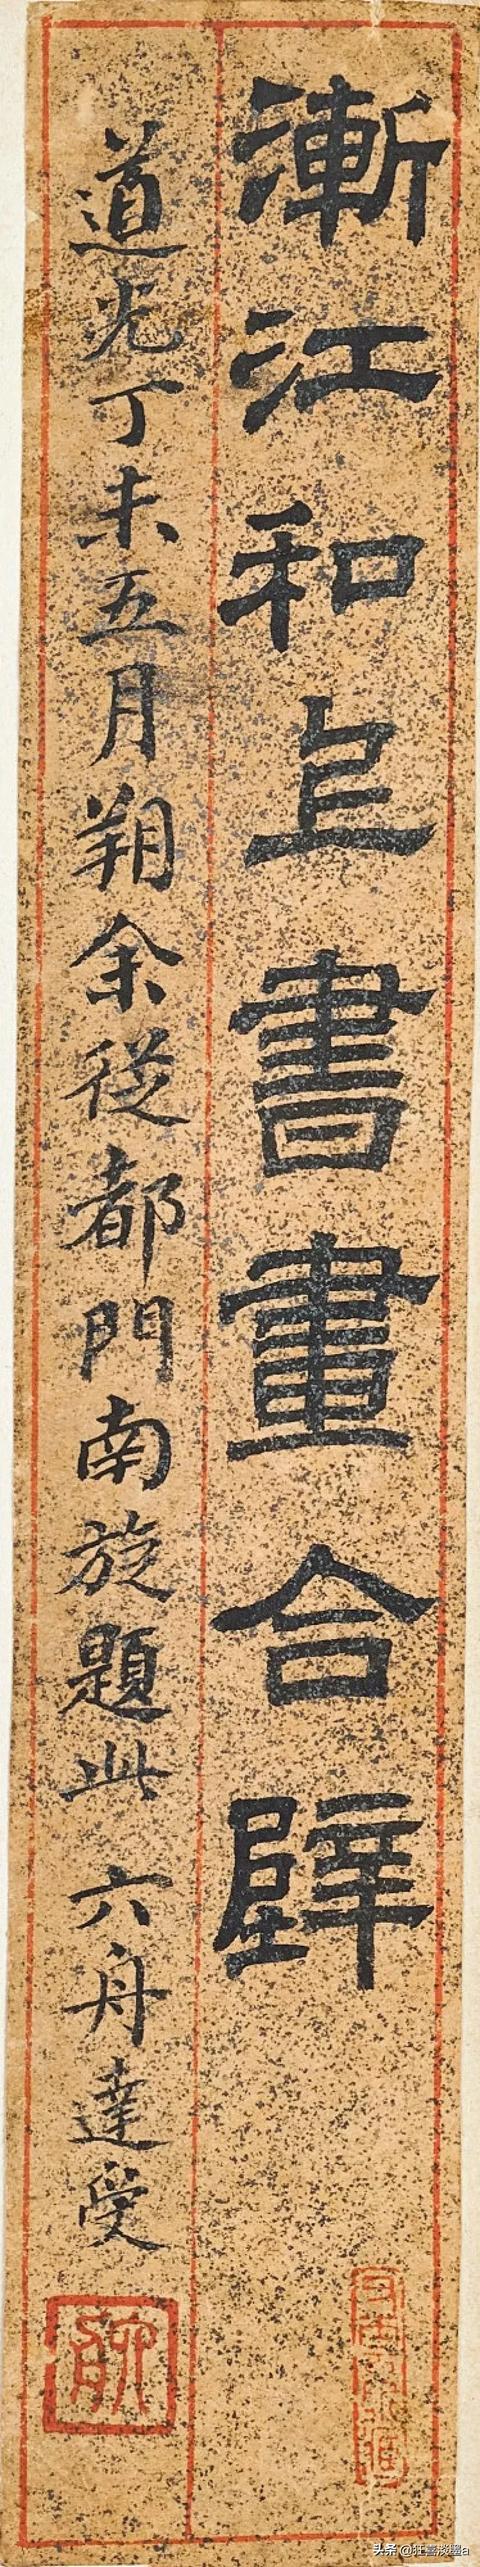 漸江和上書畫合壁
道光丁未五月朔余從都門南旋題此 六舟達受
头条 @狂喜淡墨a